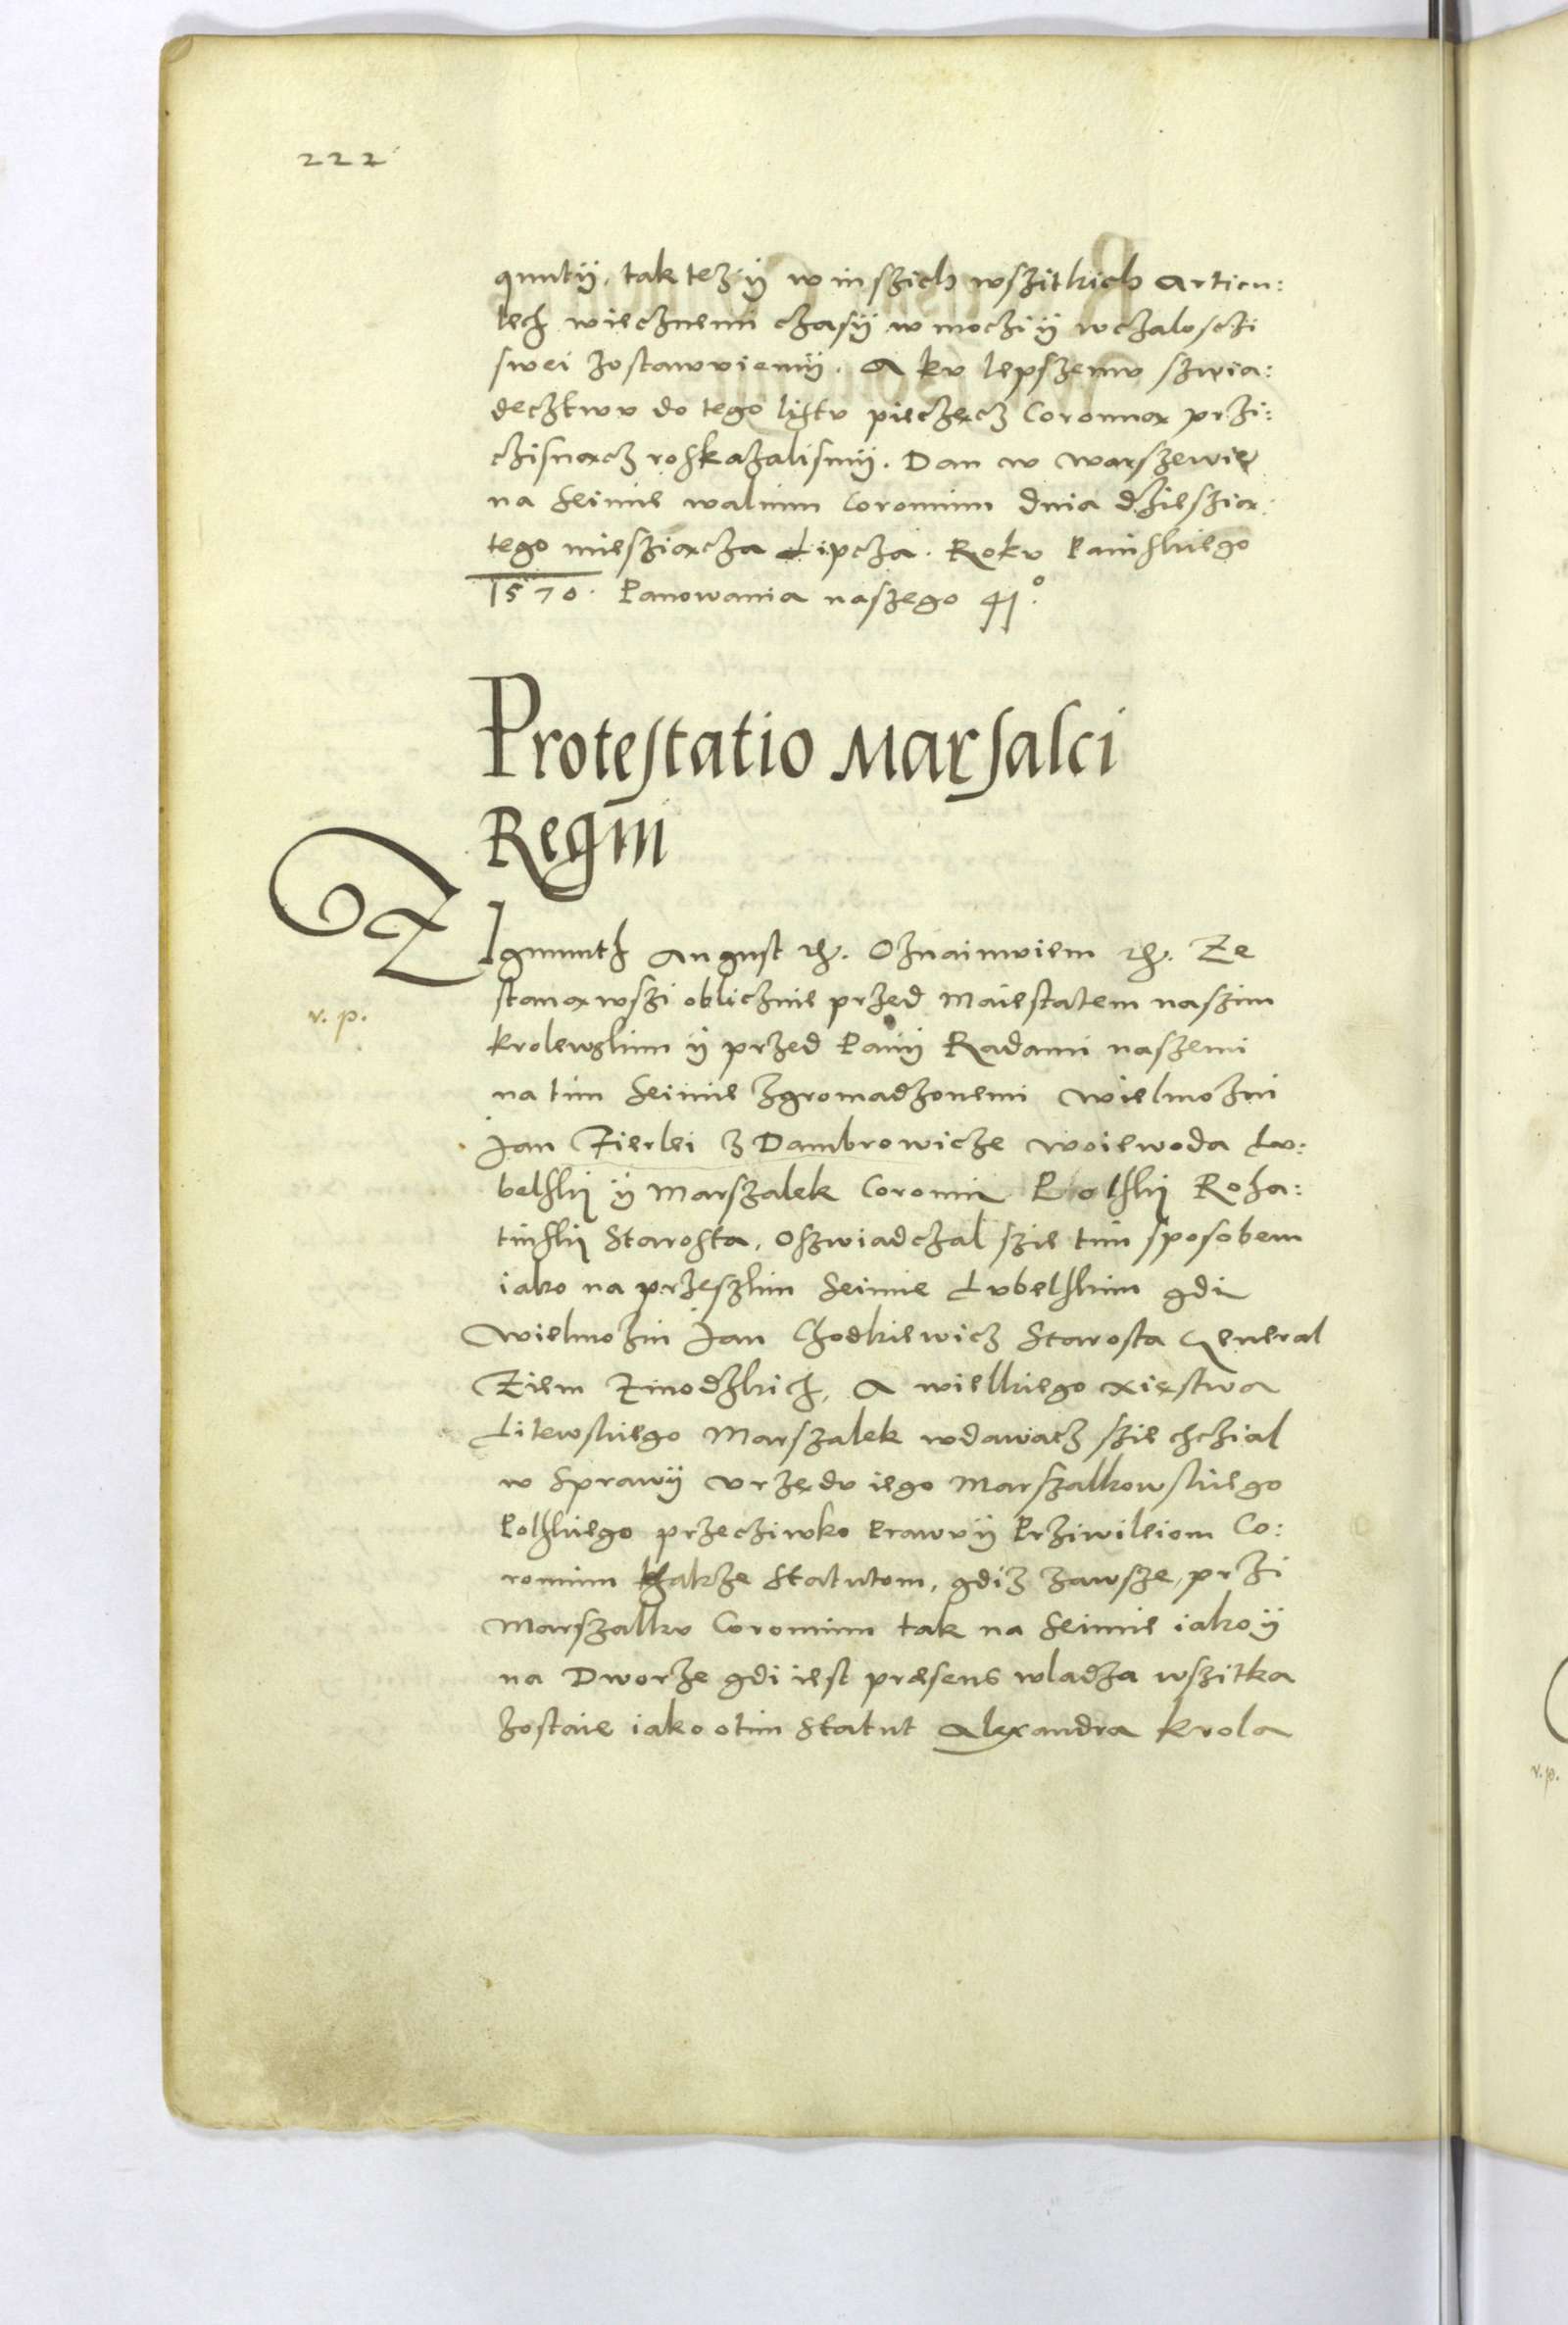 222
quntÿ, tak też ÿ w inszich wszitkich Articu:
lech wiecznemi czasÿ w moczi ÿ wczalosczi
swei zostawuiemÿ. A ku lepszemu szwia:
decztwu do tego listu pieczęcz Coronną przi:
czisnącz roskazalismÿ. Dan w Warszewie
na Seimie walnim Coronnim dnia dziesżią
tego miesziącza Lipcza. Roku Panskiego
1570. Panowania naszego 41.º
Protestatio Marsalci
Regni
ZIgmunth August ⁊c. Oznaimuiem ⁊c. Ze
v. p.
stanąwszi oblicznie przed Maiestatem naszim
krolewskim ÿ przed Panÿ Radami naszemi
na tim Seimie zgromadzonemi Wielmożni
Jan Fierlei z Dambrowicze Woiewoda Lu:
belskij ÿ Marszalek Coronni Polskij Roha:
tinskij Starosta, Oszwiadczal szie tim sposobem
iako na przeszlim Seimie Lubelskim gdi
Wielmożni Jan Chodkiewicz Starosta General
Ziem Zmodzkich, A wielkiego xięstwa
Litewskiego Marszalek wdawacz szie chczial
w Sprawÿ urzędu iego Marszalkowskiego
Polskiego przecziwko Prawu ÿ Prziwileiom Co:
ronnim także Statutom, gdiz zawsze, przi
Marszalku Coronnim tak na Seimie iako ÿ
na Dworze gdi iest præsens wladza wszitka
zostaie iako otim Statut Alexandra Krola
v. p.